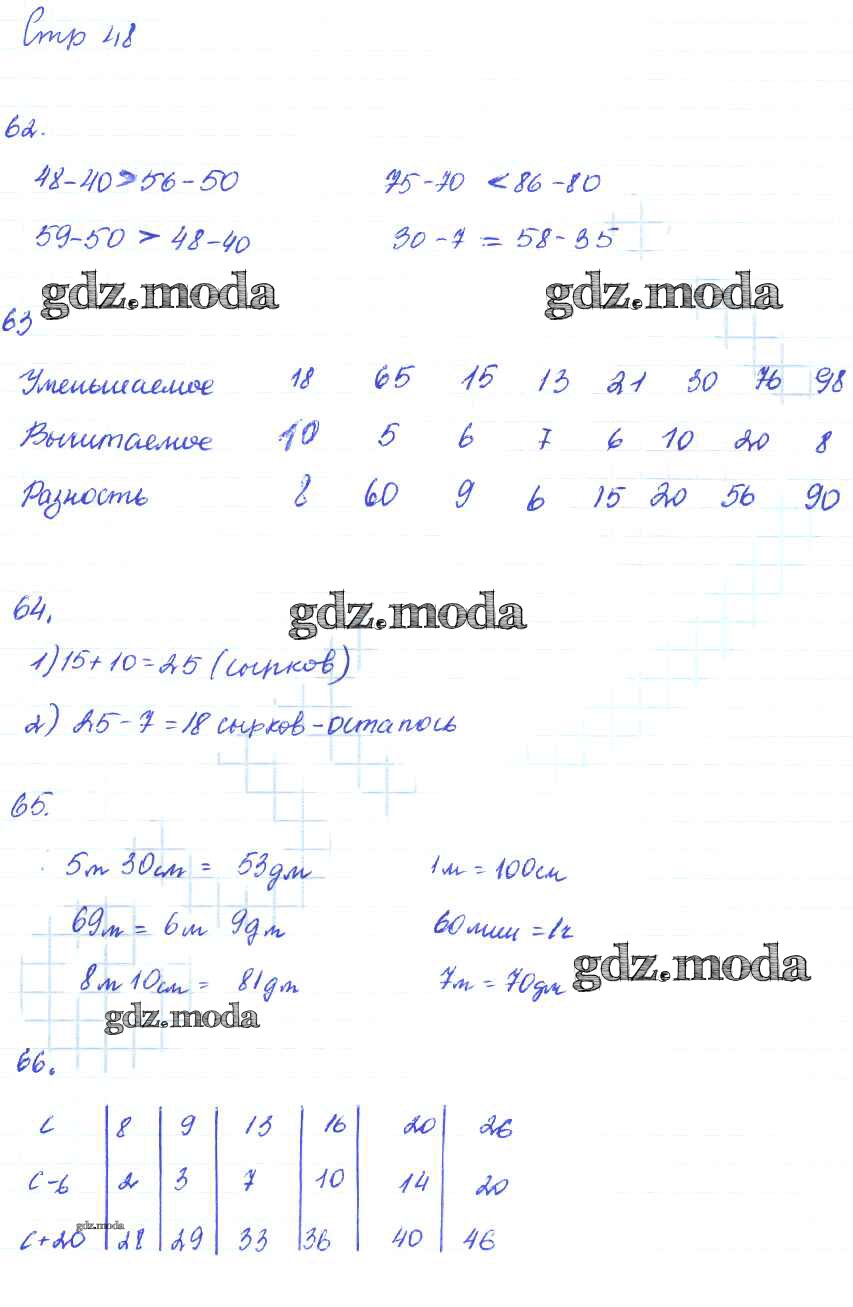 Стр 48
62.
48-40>56-50 75-70 <86-80
59-50 > 48-40 30-7 = 58-35
gdz.moda gdz.moda
63
Уменьшаемое 18 65 15 13 21 30 76 98
Вычитаемое 10 5 6 7 6 10 20 8
Разность 8 60 9 6 15 20 56 90
gdz.moda
64.
1) 15+10=25 (сырков)
2) 25-7=18 сырков-осталось
65.
5м 30см = 53дм 1м = 100см
69м = 6м 9дм 60мин = 1ч
8м 10см = 81дм 7м = 70дм
gdz.moda
gdz.moda
66.
с 8 9 13 16 20 26
с-6 2 3 7 10 14 20
с+20 28 29 33 36 40 46
gdz.moda